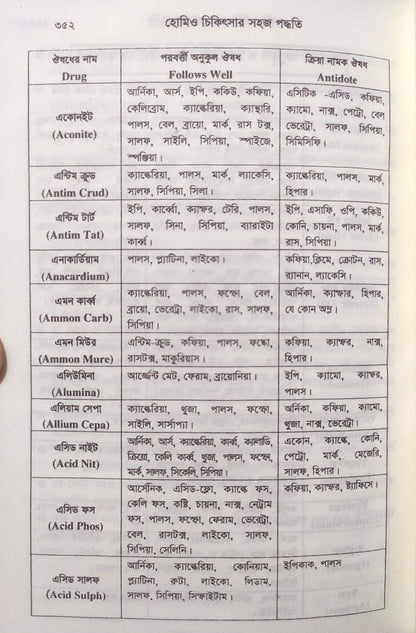 ৩৫২
হোমিও চিকিৎসার সহজ পদ্ধতি
ঔষধের নাম
Drug
পরবর্তী অনুকুল ঔষধ
Follows Well
ক্রিয়া নাশক ঔষধ
Antidote
একোনইট
(Aconite)
আর্নিকা, আর্স, ইপি, ককিউ, কফিয়া,
কেলিব্রোম, ক্যাল্কেরিয়া, ক্যাস্থারি,
পালস, বেল, ব্রায়ো, মার্ক, রাস টক্স,
সালফ, সাইলি, সিপিয়া, স্পাইজে,
স্পঞ্জিয়া।
এসিটিক -এসিড, কফিয়া,
ক্যামো, নাক্স, পেট্রো, বেল
ভেরেট্রা, সালফ, সিপিয়া,
সিমিসিফি।
এন্টিম ক্রুড
(Antim Crud)
ক্যাল্কেরিয়া, পালস, মার্ক, ল্যাকেসি,
সালফ, সিপিয়া, সিলা।
ক্যাল্কেরিয়া, পালস, মার্ক,
হিপার।
এন্টিম টার্ট
(Antim Tat)
ইপি, কার্ব্বো, ক্যাম্ফর, টেরি, পালস,
সালফ, সিনা, সিপিয়া, ব্যারাইটা
কার্ব্ব।
ইপি, এসাফি, ওপি, ককিউ,
কোনি, চায়না, পালস, মার্ক,
রাস, সিপিয়া।
এনাকার্ডিয়াম
(Anacardium)
পালস, প্ল্যাটিনা, লাইকো।
কফিয়া,ক্লিমে, ক্রোটন, রাস,
র‍্যানান, ল্যাকেসি।
এমন কার্ব্ব
(Ammon Carb)
ক্যাল্কেরিয়া, পালস, ফস্ফো, বেল,
ব্রায়ো, ভেরেট্রা, লাইকো, রাস, সালফ,
সিপিয়া।
আর্নিকা, ক্যাম্ফার, হিপার,
যে কোন অম্ল।
এমন মিউর
(Ammon Mure)
এন্টিম-ক্রুড, কফিয়া, পালস, ফস্ফো,
রাসটক্স, মাকুরিয়াস।
কফিয়া, ক্যাম্ফর, নাক্স,
হিপার।
এলিউমিনা
(Alumina)
আর্জ্জেন্ট মেট, ফেরাম, ব্রায়োনিয়া।
ইপি, ক্যামো, ক্যাম্ফর,
পালস।
এলিয়াম সেপা
(Allium Cepa)
ক্যাল্কেরিয়া, থুজা, পালস, ফস্ফো,
সাইলি, সার্সাপ্যা।
অর্নিকা, কফিয়া, ক্যামো,
থুজা, নাক্স, ভেরেট্রা।
এসিড নাইট
(Acid Nit)
আর্নিকা, আর্স, ক্যাল্কেরিয়া, কার্ব্ব, ক্যালাডি,
ক্রিয়ো, কেলি কার্ব্ব, থুজা, পালস, ফস্ফো,
মার্ক, সালফ, সিকেলি, সিপিয়া।
একোন, ক্যাল্কে, কোনি,
পেট্রো, মার্ক, মেজেরি,
সালফ, হিপার।
এসিড ফস
(Acid Phos)
আর্সেনিক, এসিড-ফ্লো, ক্যাল্কে ফস,
কেলি ফস, কষ্টি, চায়না, নাক্স, নেট্রাম
ফস, পালস, ফস্ফো, ফেরাম, ভেরেট্রা,
বেল, রাসটক্স, লাইকো, সালফ,
সিপিয়া, সেলিনি।
কফিয়া, ক্যাম্ফর, ষ্ট্যাফিসে।
এসিড সালফ
(Acid Sulph)
আর্নিকা, ক্যাল্কেরিয়া, কোনিয়াম,
প্ল্যাটিনা, রুটা, লাইকো, লিডাম,
সালফ, সিপিয়া, সিম্ফাইটাম।
ইপিকাক, পালস